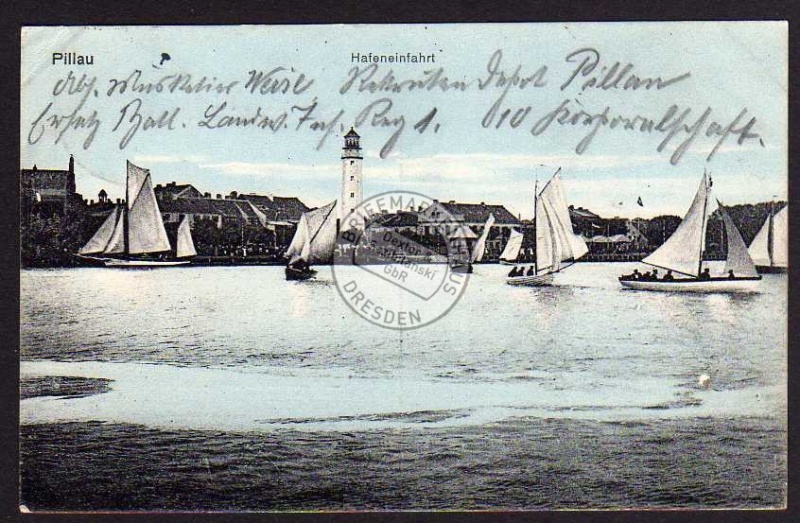 Pillau
Hafeneinfahrt
Abs. Musketier Weise Rekruten Depot Pillau
Ersatz Batl. Landw. Inf. Reg 1. 010 Korporalschaft.
BRIEFMARKENHAUS
Dexter
GbR
DRESDEN